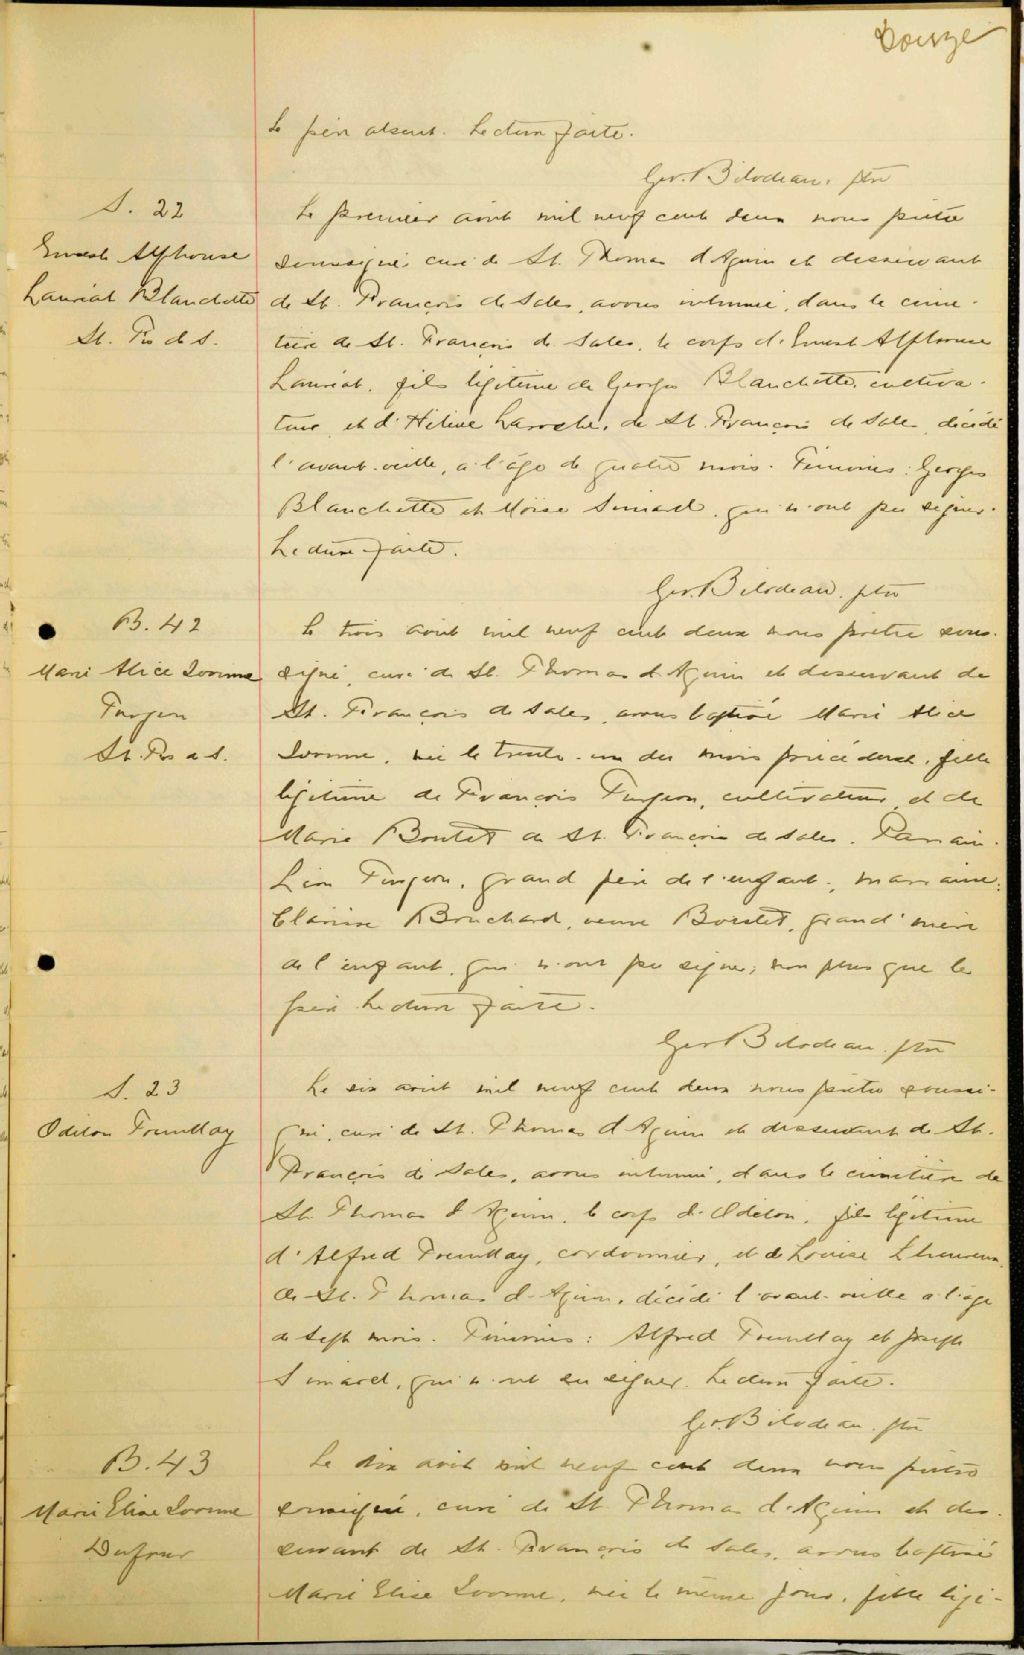 Douze
le père absent. Lecture faite.
Geo. Bilodeau. ptre
S. 22
Ernest Alphonse
Lauréat Blanchette
St. Frs de S.
Le premier août mil neuf cent deux nous prêtre
soussigné curé de St. Thomas d'Aquin et desservant
de St. François de Sales, avons inhumé, dans le cime-
tière de St. François de Sales, le corps d'Ernest Alphonse
Lauréat, fils légitime de Georges Blanchette, cultiva-
teur, et d'Hélène Laroche, de St. François de Sales, décédé
l'avant-veille, à l'âge de quatre mois. Témoins: Georges
Blanchette et Moïse Simard, qui n'ont pu signer.
Lecture faite.
Geo. Bilodeau. ptre
B. 42
Marie Alice Ivonne
Turgeon
St. Frs de S.
Le trois août mil neuf cent deux nous prêtre sous-
signé, curé de St. Thomas d'Aquin et desservant de
St. François de Sales, avons baptisé Marie Alice
Ivonne, née le trente-un du mois précédent, fille
légitime de François Turgeon, cultivateur, et de
Marie Boutet de St. François de Sales. Parrain:
Léon Turgeon, grand père de l'enfant; marraine:
Clarisse Bouchard, veuve Boutet, grand'mère
de l'enfant, qui n'ont pu signer, non plus que le
père. Lecture faite.
Geo Bilodeau. ptre
S. 23
Odilon Tremblay
Le six août mil neuf cent deux nous prêtre soussi-
gné, curé de St. Thomas d'Aquin et desservant de St.
François de Sales, avons inhumé, dans le cimetière de
St. Thomas d'Aquin, le corps d'Odilon, fils légitime
d'Alfred Tremblay, cordonnier, et de Louise Lheureux
de St. Thomas d'Aquin, décédé l'avant-veille à l'âge
de sept mois. Témoins: Alfred Tremblay et Joseph
Simard, qui n'ont su signer. Lecture faite.
Geo. Bilodeau. ptre
B. 43
Marie Elise Ivonne
Dufour
Le dix août mil neuf cent deux nous prêtre
soussigné, curé de St. Thomas d'Aquin et des-
servant de St. François de Sales, avons baptisé
Marie Elise Ivonne, née le même jour, fille légi-